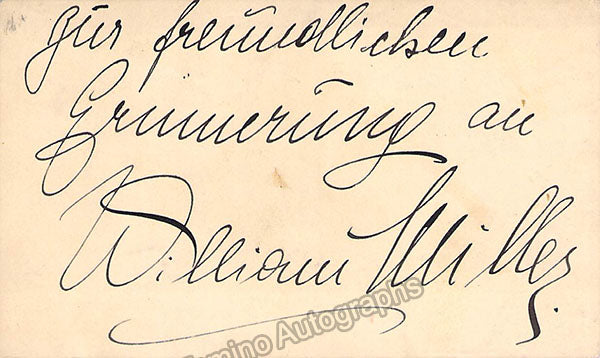 zur freundlichen
Erinnerung an
William Miller
Tamino Autographs